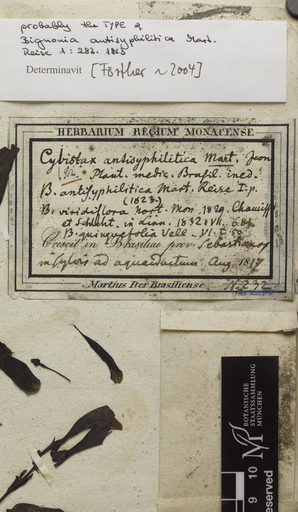 probably the TYPE of
Bignonia antisyphilitica Mart.
Reise 1: 283. 1823
Determinavit [Förther ~2004]
HERBARIUM REGIUM MONACENSE
Cybistax antisyphilitica Mart.
Plant. medic. Brasil. ined.
B. antisyphilitica Mart. Reise I. p.
(1823)
B. viridiflora hort. Mon. 1829. Chamisso
et Schlcht. in Linn. 1832. VII.
B. quinquefolia Vell.
Crescit in Brasiliae prov. Sebastianop.
in sylvis ad aquaeductum Aug. 1817
Martius Iter Brasiliense
BOTANISCHE
STAATSSAMMLUNG
MÜNCHEN
9 10
reserved